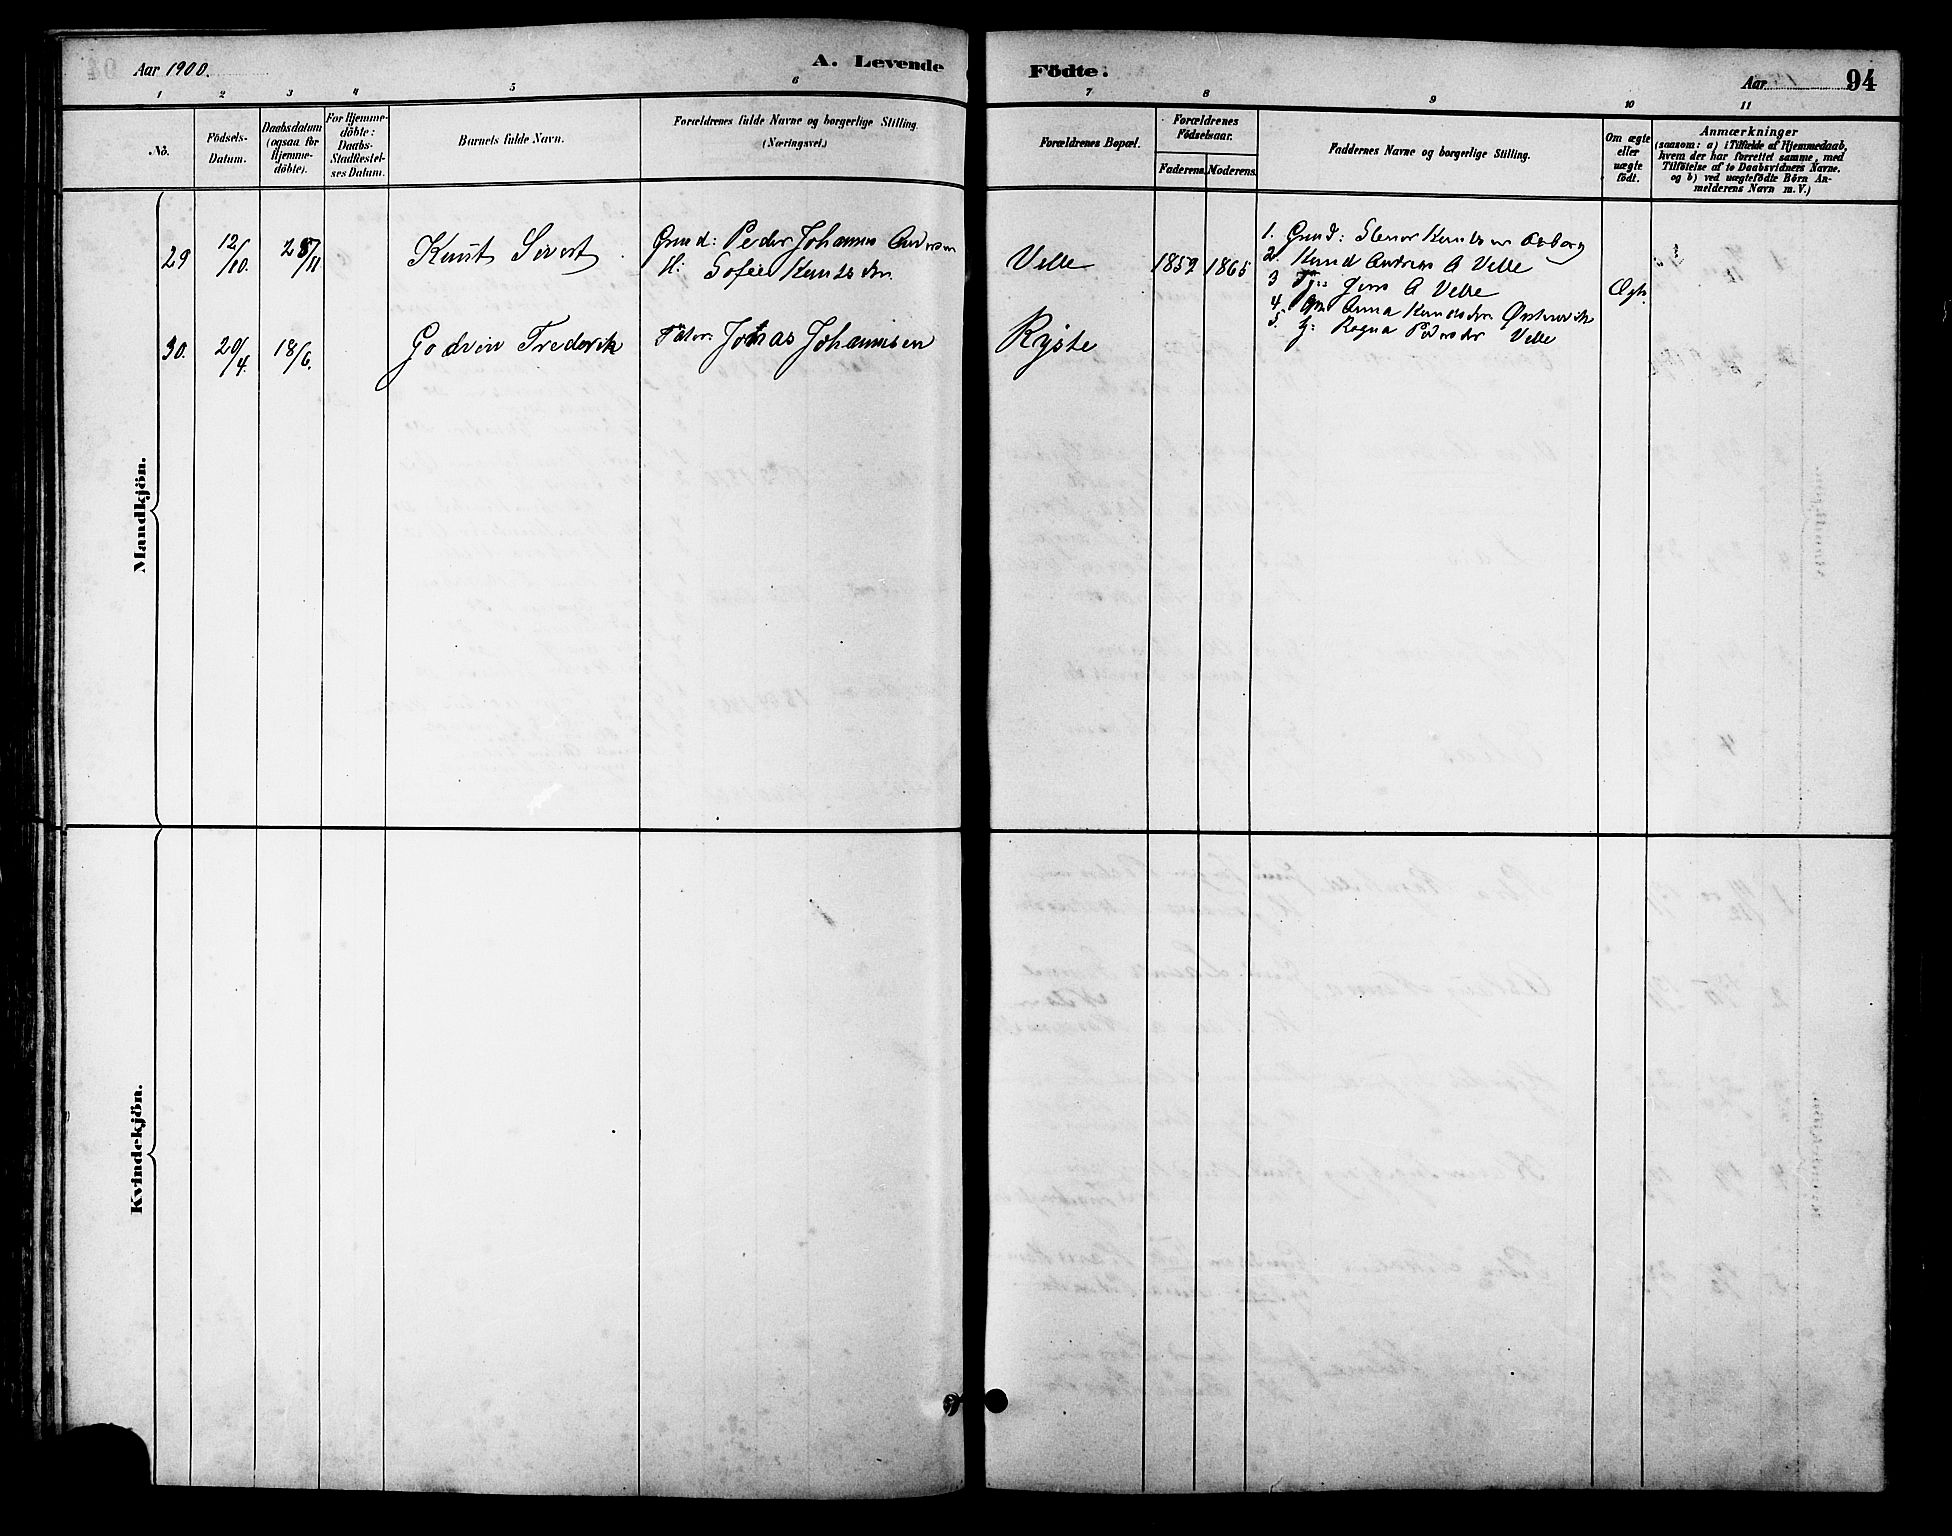 Aar 1900.
A. Levende
Födte.
Aar
94
1 2 3 4 5 6 7 8 9 10 11
No.
Födsels-
Datum.
Daabsdatum
(ogsaa for
Hjemme-
döbte).
For Hjemme-
döbte:
Daabs-
Stadfæstel-
ses Datum.
Barnets fulde Navn.
Forældrenes fulde Navne og borgerlige Stilling.
(Næringsvei.)
Forældrenes Bopæl.
Forældrenes
Födselsaar.
Faderens.
Moderens.
Faddernes Navne og borgerlige Stilling.
Om ægte
eller
uægte
födt.
Anmærkninger
(saasom: a) i Tilfælde af Hjemmedaab,
hvem der har forrettet samme, med
Tilföielse af to Daabsvidners Navne.
og b) ved uægtefödte Börn An-
melderens Navn m. V.)
Mandkjön.
29 12/10. 25/11 Knut Sivert
Grmd: Peder Johannes Andersen
H: Sofie Knutsdtr.
Velle 1859 1865
1. Grmd:
2. Knud Andreas A Velle
3 Jens A Velle
4. Anna Knudsdtr.
5. Ragna Pedersdtr Velle
Ægte
30. 20/4. 18/6. Godvin Frederik Fader: Jonas Johannisen Ryste
Kvindekjön.